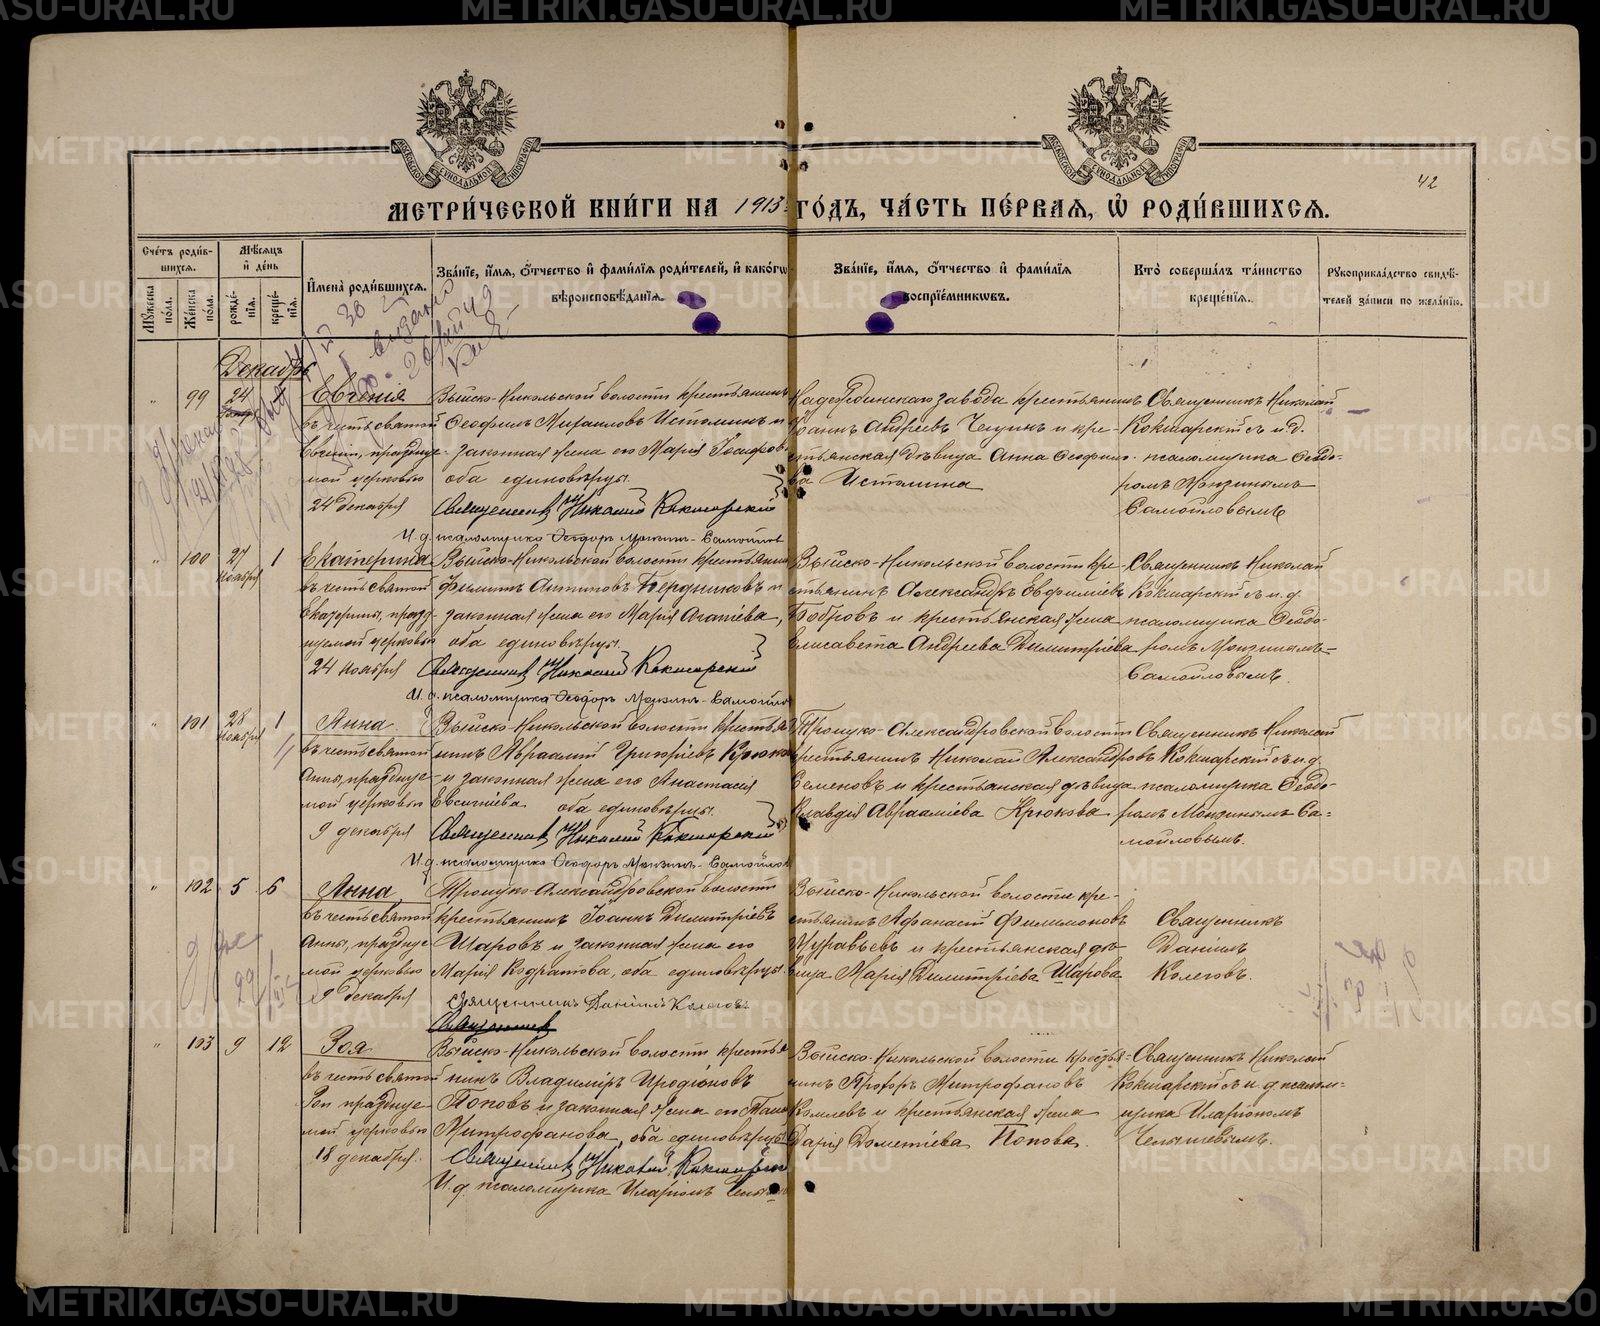 METRIKI.GASO-URAL.RU
МОСКОВСКОЙ СѴНОДАЛЬНОЙ ТИПОГРАФІИ
МОСКОВСКОЙ СѴНОДАЛЬНОЙ ТИПОГРАФІИ
42
МЕТРИ́ЧЕСКОЙ КНИ́ГИ НА 1913 ГО́ДЪ, ЧА́СТЬ ПЕ́РВАЯ, Ѽ РОДИ́ВШИХСЯ.
Сче́тъ роди́вшихся.
Му́жеска по́ла.
Же́нска по́ла.
Мѣ́сяцъ и҆ де́нь
рожде́нїя.
креще́нїя.
И҆мена̀ роди́вшихся.
Зва́нїе, и҆́мя, ѻ҆́тчество и҆ фами́лїя роди́телей, и҆ како́гѡ вѣроисповѣ́данїя.
Зва́нїе, и҆́мя, ѻ҆́тчество и҆ фами́лїя воспрїе́мникѡвъ.
Кто̀ соверша́лъ та́инство креще́нїя.
Рꙋкоприкла́дство свидѣ́телей за́писи по жела́нїю.
Декабрь
" 99 24
Евгенія
въ честь святой
Евгеніи, праздну-
мой церковью
24 декабря
Выйско-Никольской волости крестьянинъ
Ѳеофилъ Истоминъ и
законная жена его Марія
оба единовѣрцы.
Священникъ Николай Кокшарскій
И. д. псаломщика Ѳеодоръ Мокзинъ-Самойловъ
завода крестьянинъ
Іоаннъ Андреевъ и кре-
стьянская дѣвица Анна Ѳеофило-
ва Истомина
Священникъ Николай
Кокшарскій съ и. д.
псаломщика Ѳеодо-
ромъ Мокзинымъ
Самойловымъ
" 100 27 ноября 1
Екатерина
въ честь святой
Екатерины, празд-
нуемой церковью
24 ноября
Выйско-Никольской волости крестьянинъ
Филиппъ Бердниковъ и
законная жена его Марія
оба единовѣрцы.
Священникъ Николай Кокшарскій
И. д. псаломщика Ѳеодоръ Мокзинъ-Самойло
Выйско-Никольской волости кре-
стьянинъ Александръ Евфиміевъ
Бобровъ и крестьянская жена
Елисавета Андреева Димитріева
Священникъ Николай
Кокшарскій съ и. д.
псаломщика Ѳеодо-
ромъ Мокзинымъ-
Самойловымъ.
" 101 28 ноября 1
Анна
въ честь святой
Анны, праздну-
мой церковью
9 декабря
Выйско-Никольской волости крестья
нинъ Авраамій Григоріевъ Крюко
и законная жена его Анастасія
Евсигніева оба единовѣрцы.
Священникъ Николай Кокшарскій
И. д. псаломщика Ѳеодоръ Мокзинъ-Самойлов
Троицко-Александровской волости
крестьянинъ Николай Александровъ
Семеновъ и крестьянская дѣвица
Клавдія Авраамiева Крюкова
Священникъ Николай
Кокшарскій съ и. д.
псаломщика Ѳеодо-
ромъ Мокзинымъ Са-
мойловымъ.
" 102 5 6
Анна
въ честь святой
Анны, праздну
мой церковью
9 декабря
Троицко-Александровской волости
крестьянинъ Іоаннъ Димитріевъ
Шаровъ и законная жена его
Марія Кодратова, оба единовѣрцы.
священникъ Даніилъ Колеговъ
Священникъ
Выйско-Никольской волости кре-
стьянинъ Афанасій Филимоновъ
Муравьевъ и крестьянская дѣ-
вица Марія Димитріева Шарова
Священникъ
Даніилъ
Колеговъ.
" 103 9 12
Зоя
въ честь святой
Зои праздну-
мой церковью
18 декабря.
Выйско-Никольской волости крестья
нинъ Владиміръ Иродіоновъ
Поповъ и законная жена его
Митрофанова, оба единовѣрцы
Священникъ Николай Кокшарскій
И. д. псаломщика Иларіонъ
Выйско-Никольской волости крестья-
нинъ Митрофановъ
и крестьянская жена
Дарія Дометіева Попова.
Священникъ Николай
Кокшарскій съ и. д. псалом-
щика Иларіономъ
Челышевымъ.